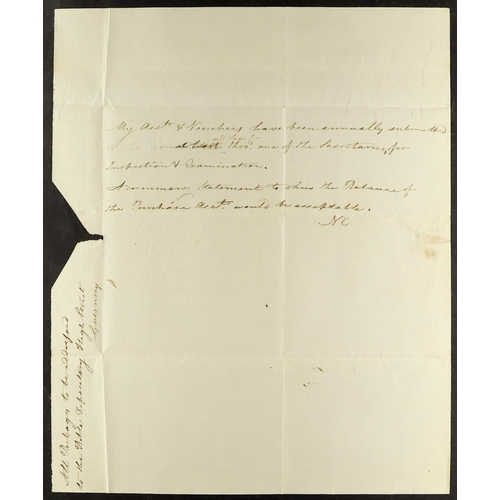 My Accts & Vouchers have been annually submitted
thro' one of the Secretaries, for
Inspection & Examination.
A summary Statement to shew the Balance of
the Purchase Acct. would be acceptable.
NC
All Packages to be addressed
to the Bible Depository High Street
Guernsey